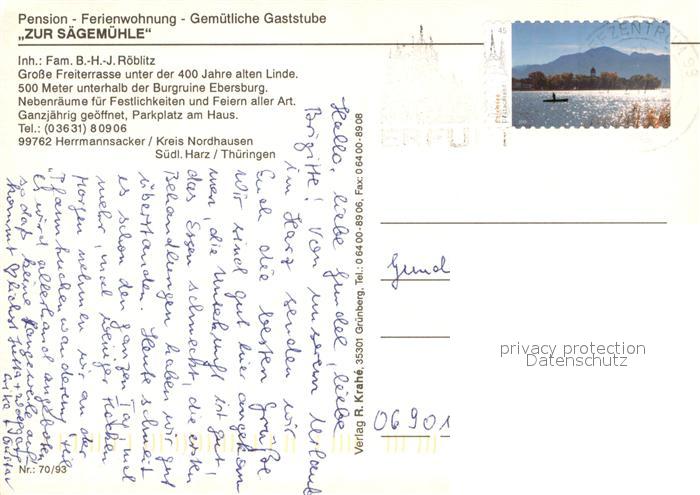 Pension - Ferienwohnung - Gemütliche Gaststube
„ZUR SÄGEMÜHLE"
Inh.: Fam. B.-H.-J. Röblitz
Große Freiterrasse unter der 400 Jahre alten Linde.
500 Meter unterhalb der Burgruine Ebersburg.
Nebenräume für Festlichkeiten und Feiern aller Art.
Ganzjährig geöffnet, Parkplatz am Haus.
Tel.: (03631) 80906
99762 Herrmannsacker / Kreis Nordhausen
Südl. Harz / Thüringen
Hallo, liebe Gundel, liebe
Brigitte! Von unserem Urlaub
im Harz senden wir
Euch die besten Grüße
Wir sind gut hier angekom
men, die Unterkunft ist gut,
das Essen schmeckt, die ersten
Behandlungen haben wir gut
überstanden. Heute schneit
es schon den ganzen Tag mal
mehr, mal weniger Flocken.
Morgen nehmen wir an der
Pfannkuchenwanderung teil
Es wird allerhand angeboten
sodaß keine Langeweile auf
kommt.
Verlag R. Krahé, 35301 Grünberg, Tel.: 06400-8906, Fax: 06400-8908
Nr.: 70/93
45
BRIEFZENTRUM 99
ERFURT
Gund
06901
privacy protection
for DSVGO